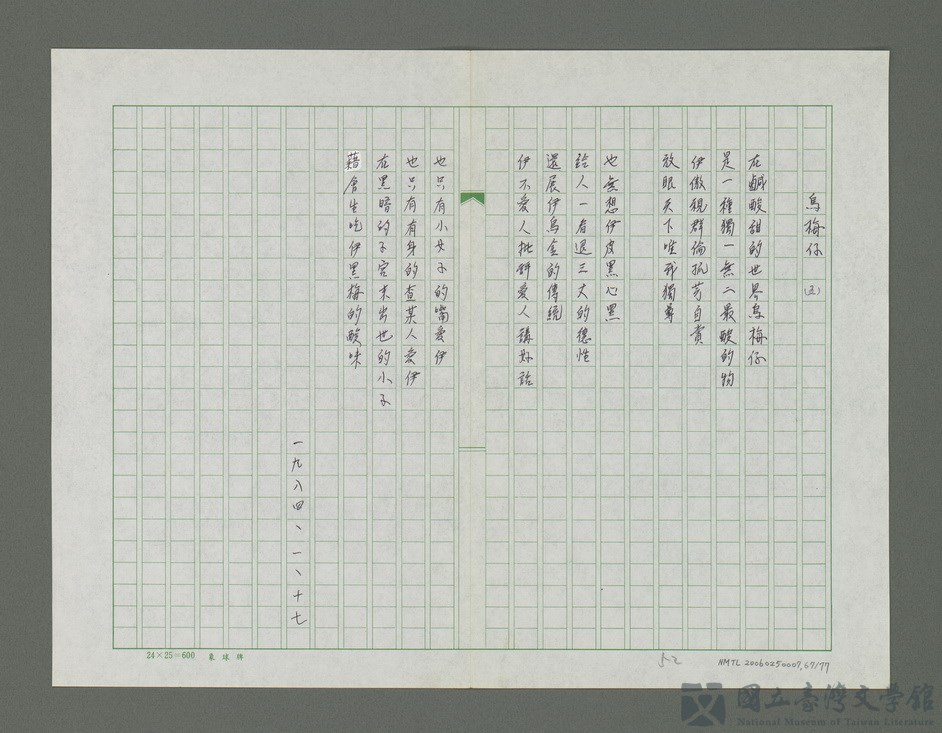 烏梅仔 (五)
在鹹酸甜的世界烏梅仔
是一種獨一無二最酸的物
伊傲視群倫孤芳自賞
放眼天下唯我獨尊
也無想伊皮黑心黑
給人一看退三丈的德性
還展伊烏金的傳統
伊不愛人批評愛人講好話
也只有小女子的嘴愛伊
也只有有身的查某人愛伊
在黑暗的子宮未出世的小子
藉會生吃伊黑梅的酸味
一九八四、一、十七
24×25=600 象球牌
52
NMTL 20060250007,67/77
國立臺灣文學館
National Museum of Taiwan Literature